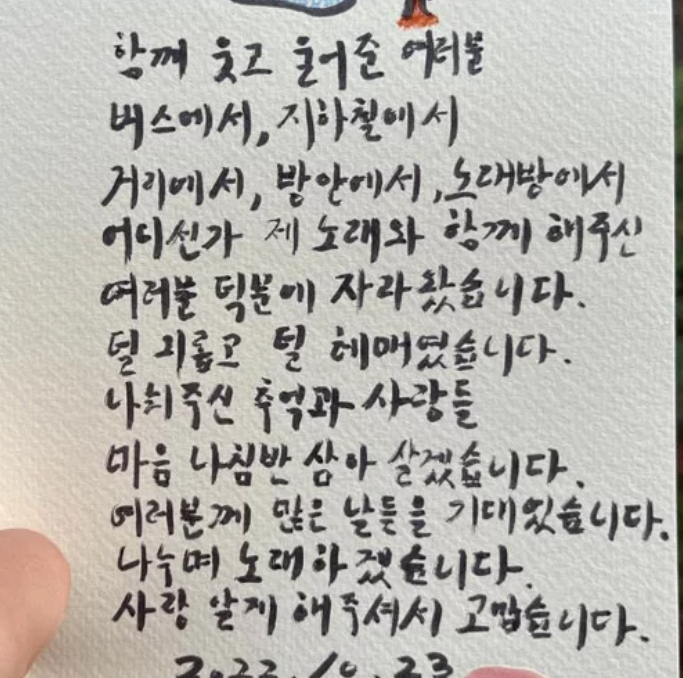 함께 웃고 울어준 여러분
버스에서, 지하철에서
거리에서, 방안에서, 노래방에서
어디선가 제 노래와 함께 해주신
여러분 덕분에 자라왔습니다.
덜 외롭고 덜 헤매였습니다.
나눠주신 추억과 사랑들
마음 나침반 삼아 살겠습니다.
여러분께 많은 날들을 기대있습니다.
나누며 노래하겠습니다.
사랑 알게 해주셔서 고맙습니다.
2022.10.23